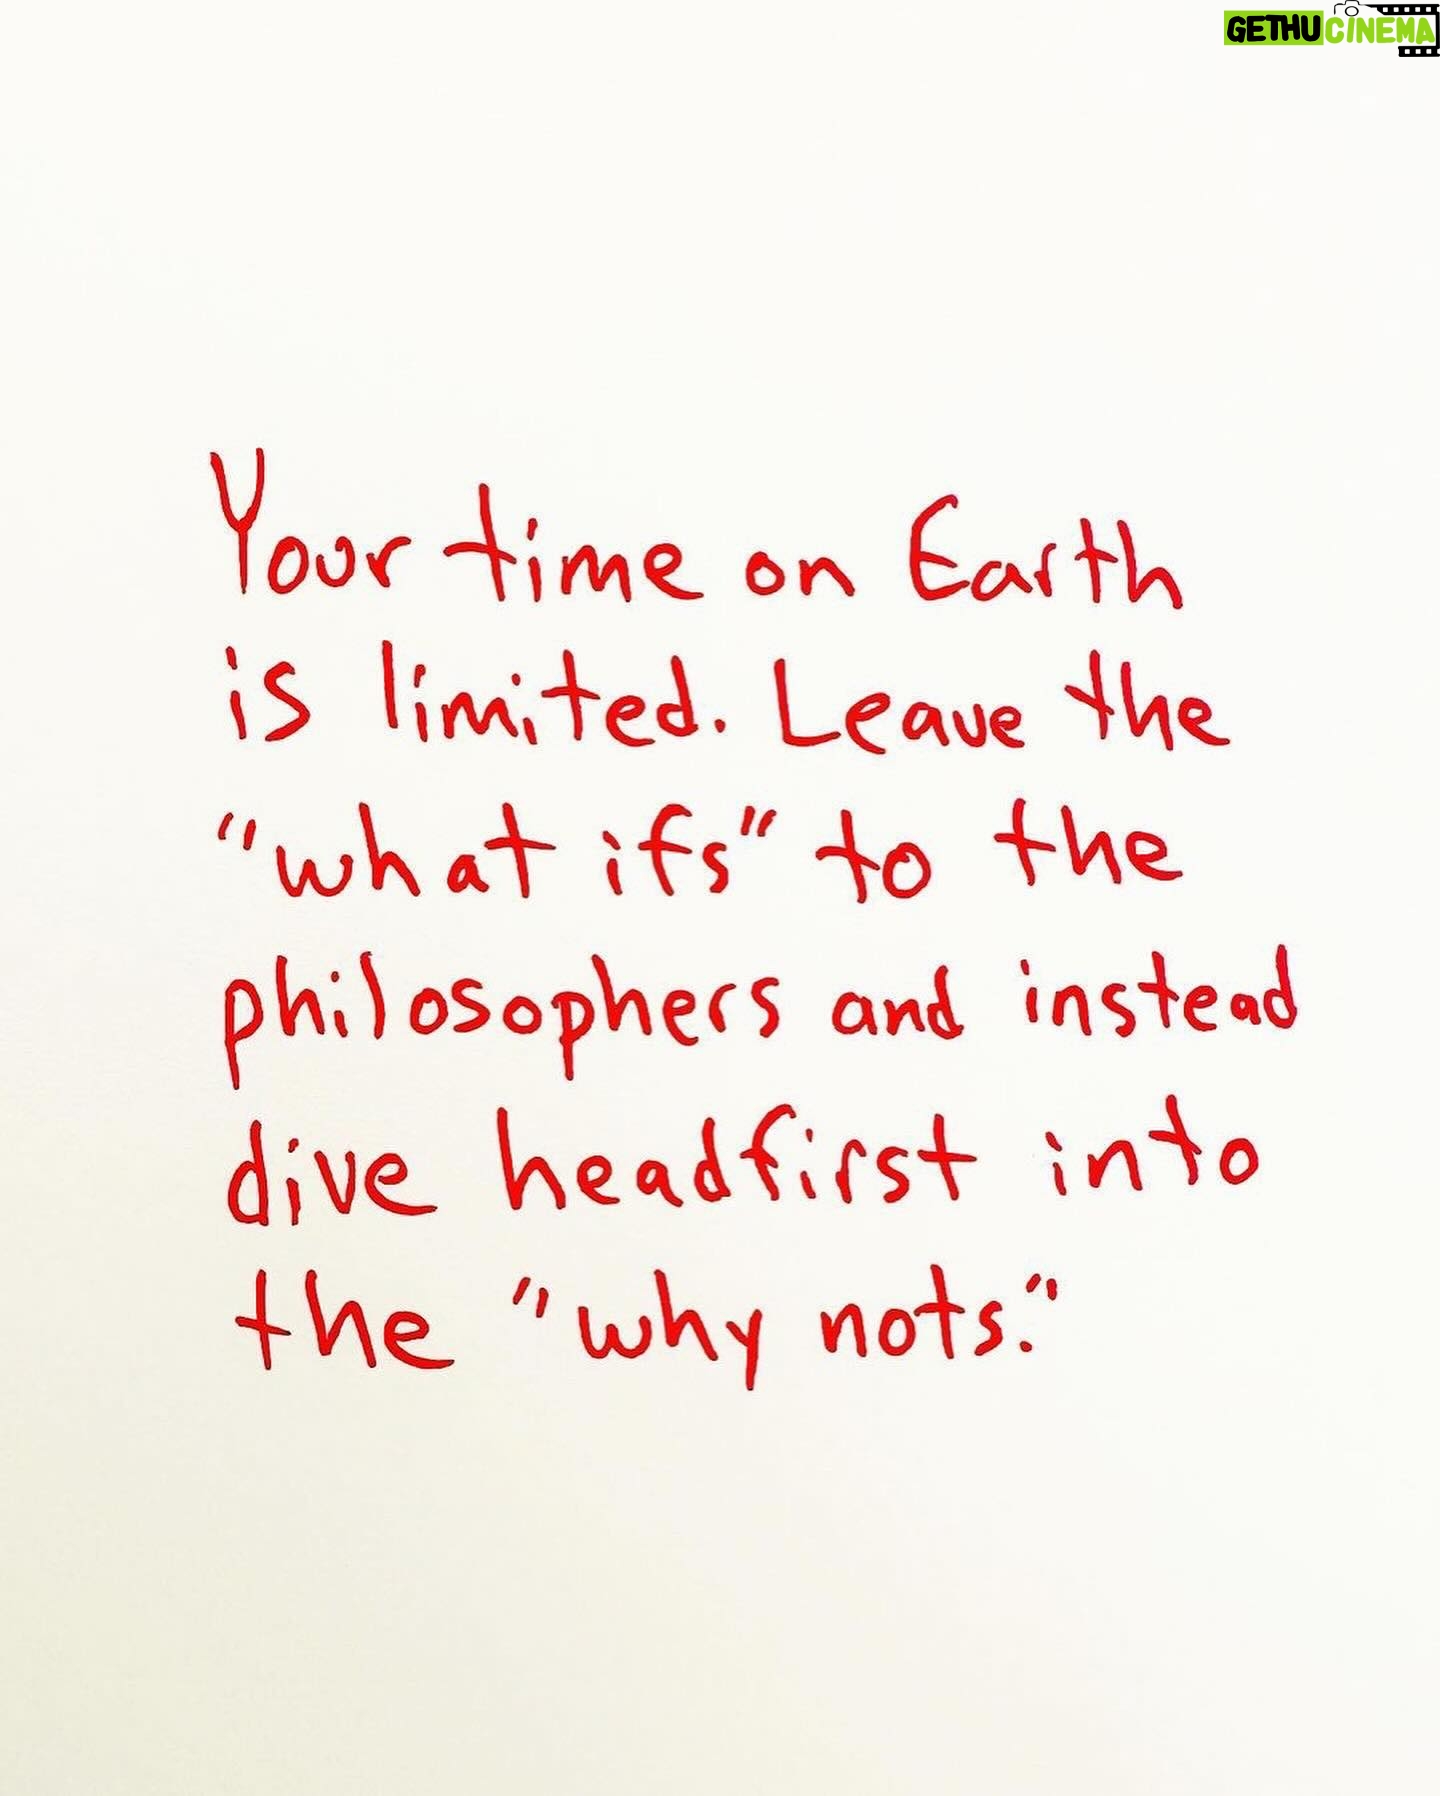 GETHUCINEMA
Your time on Earth
is limited. Leave the
"what ifs" to the
philosophers and instead
dive headfirst into
the "why nots."